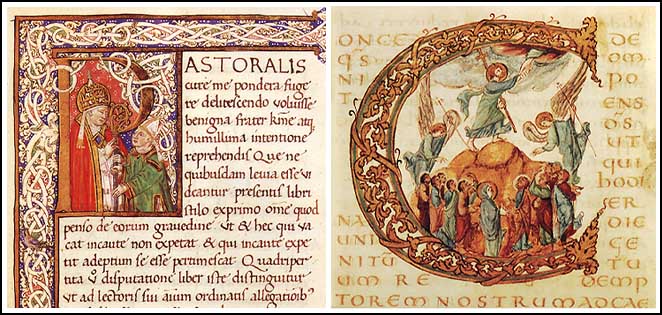 PASTORALIS
cure me pondera fuge
re delitescendo voluisse
benigna frater kme atq;
humillima intentione
reprehendis Que ne
quibusdam levia esse vi
deantur presentis libri
stilo exprimo ome quod
penso de eorum gravedine. Ut & hec qui va
cat incaute non expetat & qui incaute expe
tit adeptum se esse pertimescat. Quadriper
tita v disputatione liber iste distinguitur
ut ad lectoris sui aium ordinatis allegatioib;
CONCE DE
QS OM
NI PO
T ENS
DS UT
QUI
HODI
ER
NA DIE
UNI GE
NITU TU
UM RE DEMP
TOREM NOSTRUM AD CAE